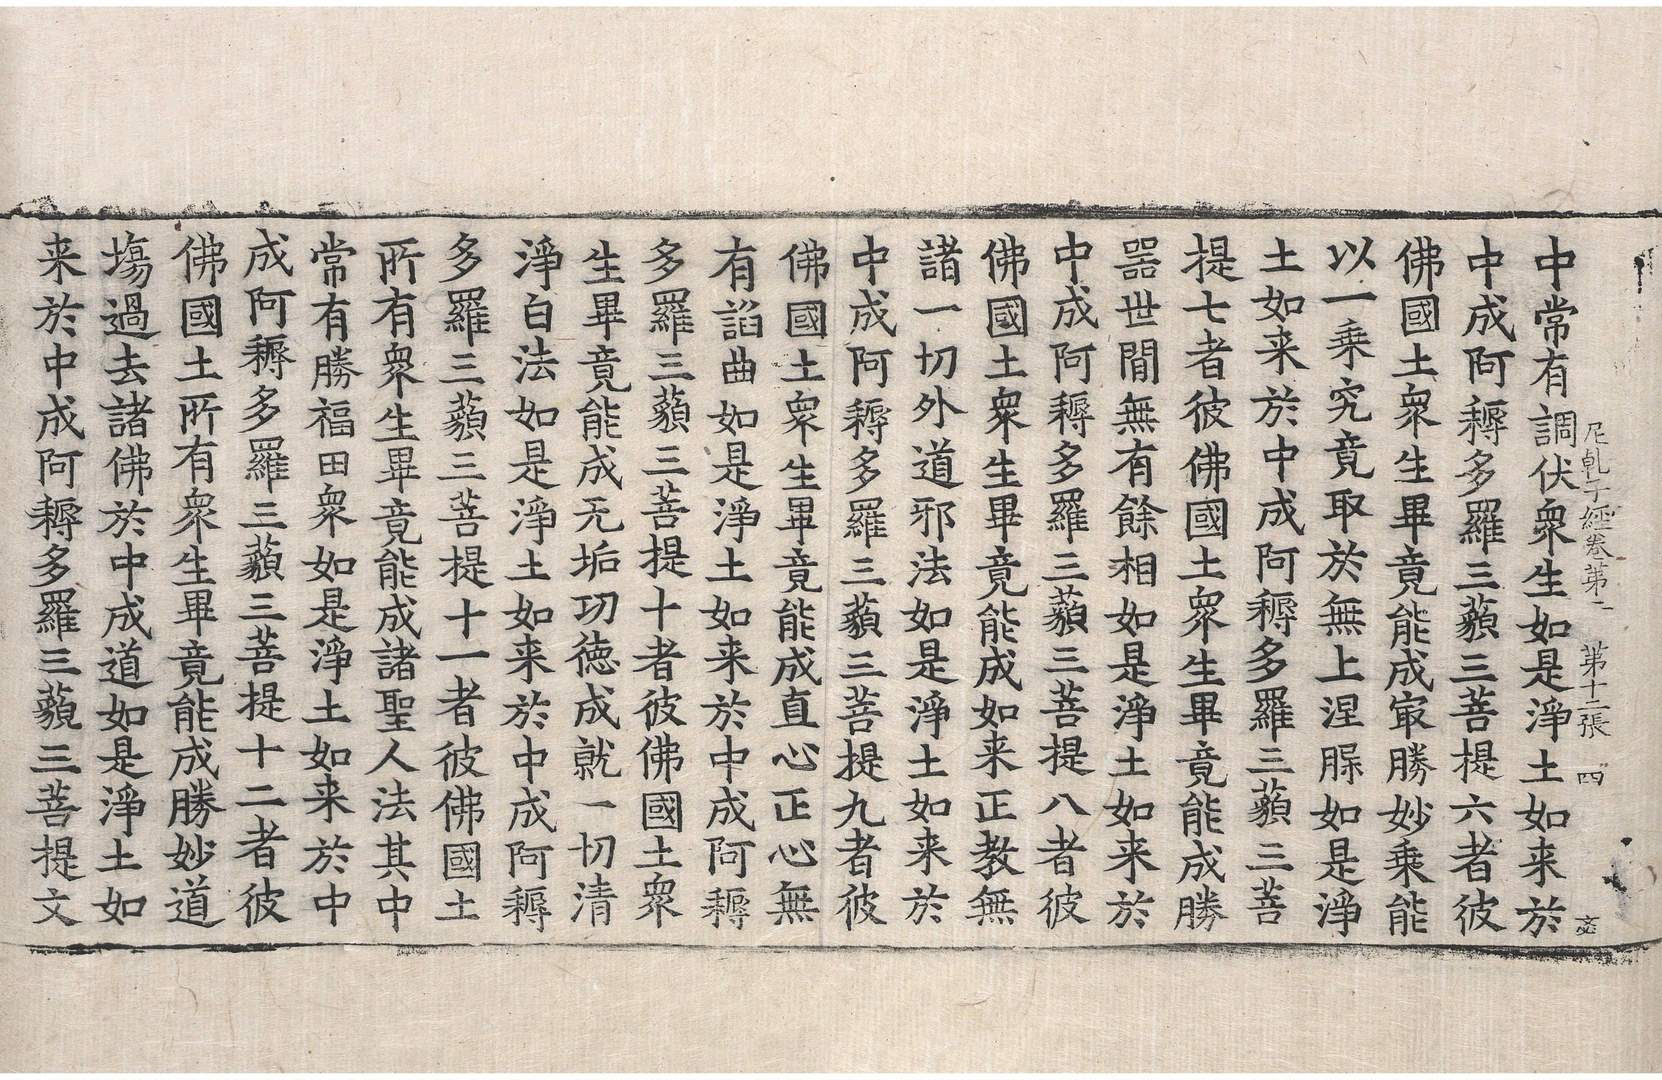 尼乹子經卷第二　第十二張　四
中常有調伏衆生如是淨土如来於
中成阿耨多羅三藐三菩提六者彼
佛國土衆生畢竟能成冣勝妙乘能
以一乘究竟取於無上涅槃如是淨
土如来於中成阿耨多羅三藐三菩
提七者彼佛國土衆生畢竟能成勝
器世間無有餘相如是淨土如来於
中成阿耨多羅三藐三菩提八者彼
佛國土衆生畢竟能成如来正教無
諸一切外道邪法如是淨土如来於
中成阿耨多羅三藐三菩提九者彼
佛國土衆生畢竟能成直心正心無
有諂曲如是淨土如来於中成阿耨
多羅三藐三菩提十者彼佛國土衆
生畢竟能成无垢功徳成就一切清
淨白法如是淨土如来於中成阿耨
多羅三藐三菩提十一者彼佛國土
所有衆生畢竟能成諸聖人法其中
常有勝福田衆如是淨土如来於中
成阿耨多羅三藐三菩提十二者彼
佛國土所有衆生畢竟能成勝妙道
塲過去諸佛於中成道如是淨土如
来於中成阿耨多羅三藐三菩提文